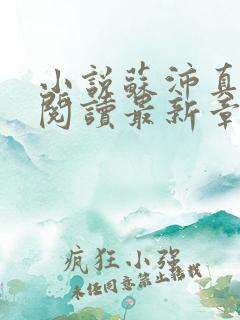 小說蘇沛真
閱讀最新章
疯狂小强
未经同意禁止转载